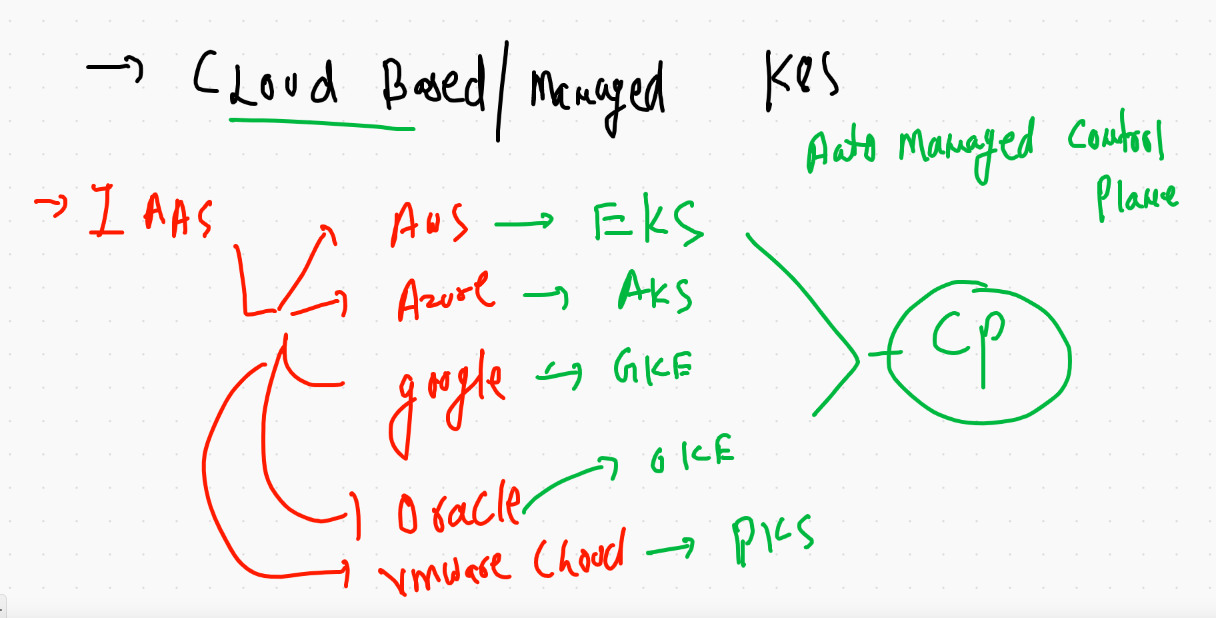 → CLoud Based/Managed K8S
Auto Managed Control
Plane
→ I AAS
AWS → EKS
Azure → AKS
google → GKE
CP
Oracle → OKE
vmware Cloud → PKS